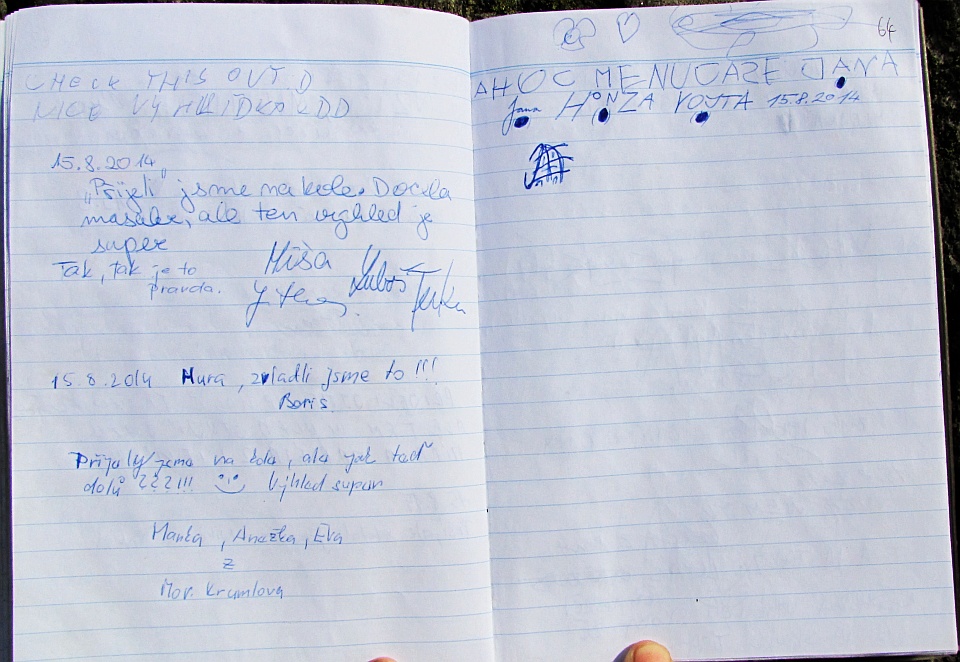 CHECK THIS OUT D
NICE VÝHLÍDKA XDD
15.8.2014
„Přijeli" jsme na kole. Docela
masakr, ale ten výhled je
super
Tak, tak je to
pravda.
Míša Luboš
15.8.2014 Hura, zvladli jsme to !!!
Boris
Přijely jsme na kole, ale jak teď
dolů ???!!! Výhled super
Marka, Anežka, Eva
z
Mor. Krumlova
64
AHOC MENUCAZE JANA
Jana HONZA VOJTA 15.8.2014